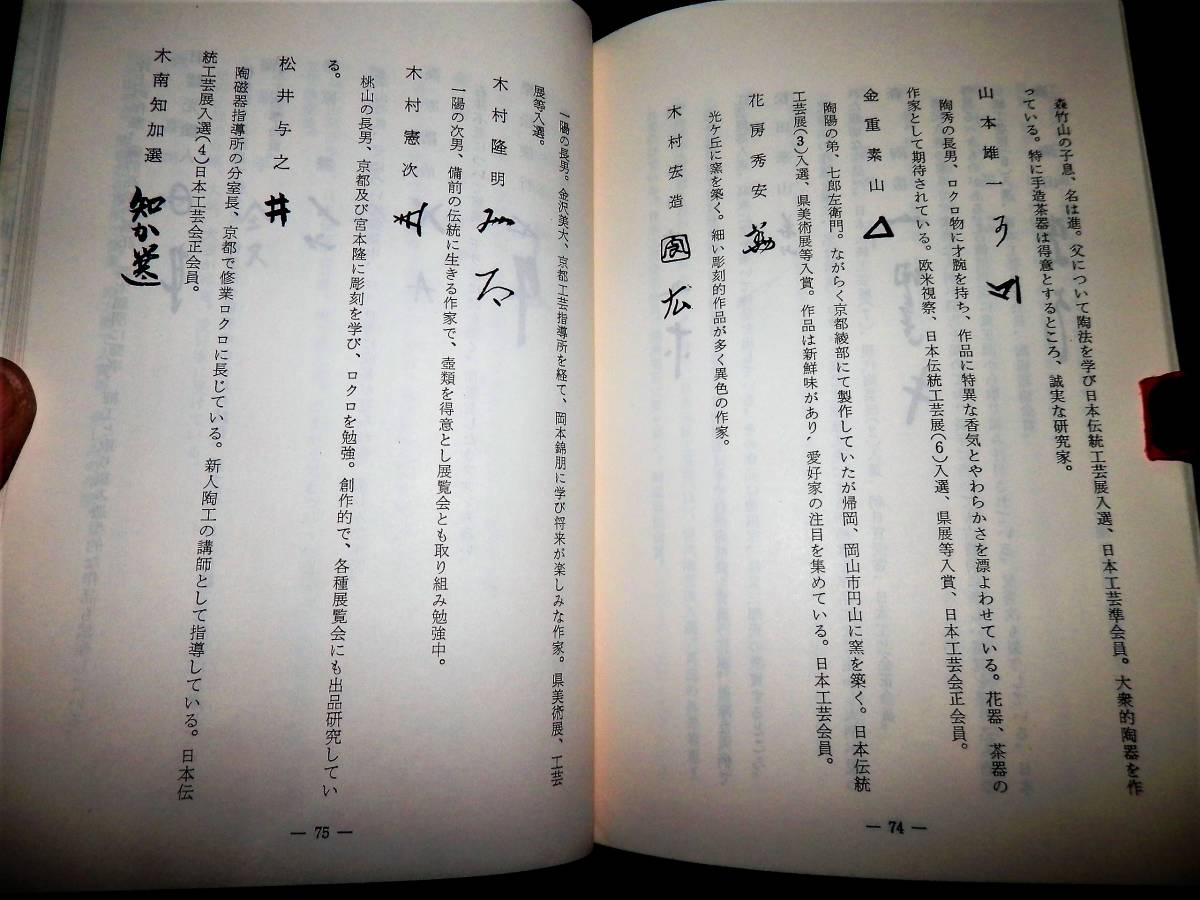 森竹山の子息、名は進。父について陶法を学び日本伝統工芸展入選、日本工芸準会員。大衆的陶器を作
っている。特に手造茶器は得意とするところ、誠実な研究家。
山本雄一
陶秀の長男、ロクロ物に才腕を持ち、作品に特異な香気とやわらかさを漂よわせている。花器、茶器の
作家として期待されている。欧米視察、日本伝統工芸展(6)入選、県展等入賞、日本工芸会正会員。
金重素山
陶陽の弟、七郎左衛門。ながらく京都綾部にて製作していたが帰岡、岡山市円山に窯を築く。日本伝統
工芸展(3)入選、県美術展等入賞。作品は新鮮味があり、愛好家の注目を集めている。日本工芸会員。
花房秀安
光ケ丘に窯を築く。細い彫刻的作品が多く異色の作家。
木村宏造
— 74 —
一陽の長男。金沢美大、京都工芸指導所を経て、岡本錦朋に学び将来が楽しみな作家。県美術展、工芸
展等入選。
木村隆明
一陽の次男、備前の伝統に生きる作家で、壺類を得意とし展覧会とも取り組み勉強中。
木村憲次
桃山の長男、京都及び宮本隆に彫刻を学び、ロクロを勉強。創作的で、各種展覧会にも出品研究してい
る。
松井与之 井
陶磁器指導所の分室長、京都で修業ロクロに長じている。新人陶工の講師として指導している。日本伝
統工芸展入選(4)日本工芸会正会員。
木南知加選 知か選
— 75 —